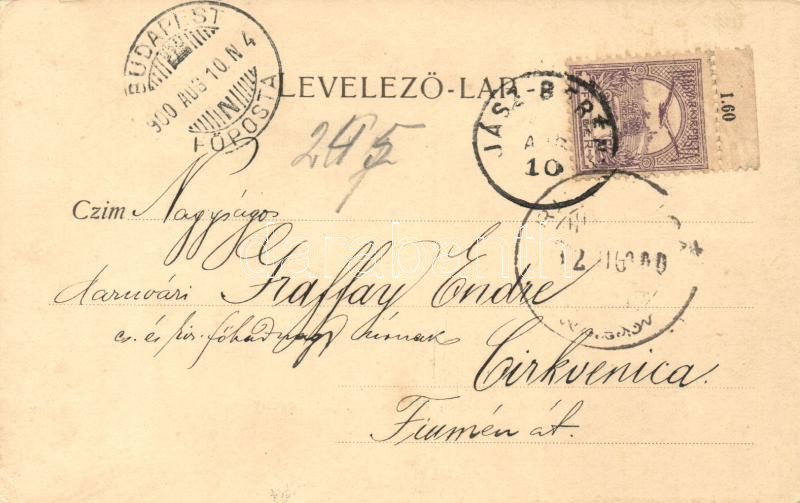 BUDAPEST
900 AUG 10 N 4
FŐPOSTA
LEVELEZŐ-LAP
JÁSZ-BERÉNY
10
1.60
245
Czím Nagyságos
daruvári Graffay Endre
cs. és kir. főhadnagy úrnak
Cirkvenica.
Fiumén át.
darabanth